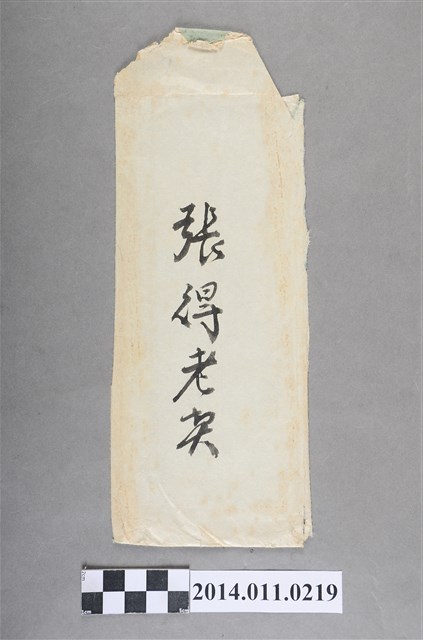 張得老契
2014.011.0219